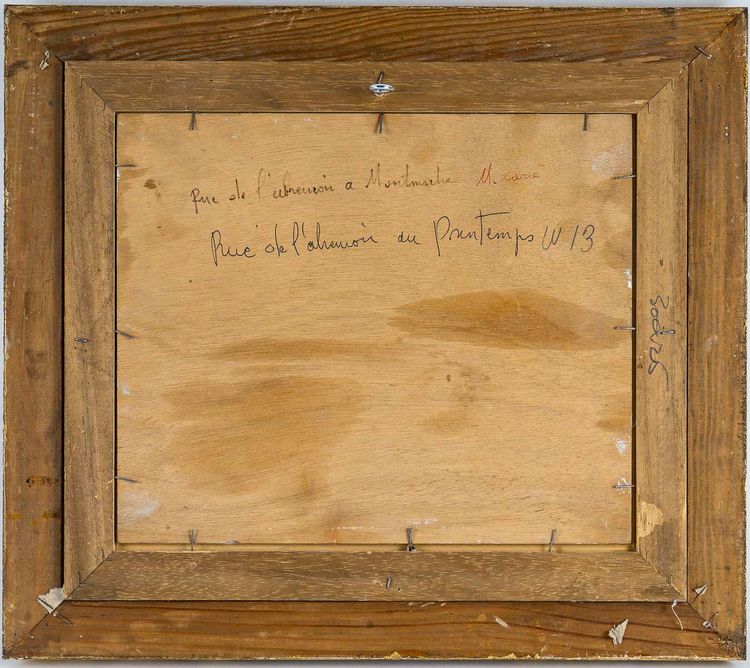 Rue de l'abreuvoir a Montmartre M.
Rue de l'abreuvoir au Printemps W 13